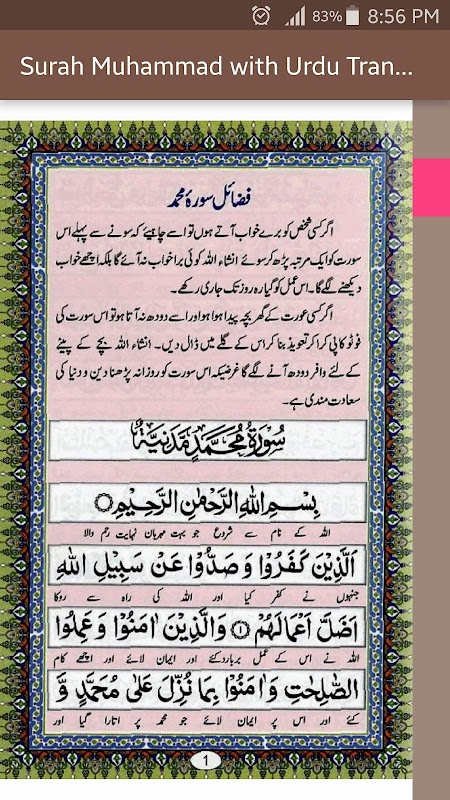 83% 8:56 PM
Surah Muhammad with Urdu Tran...
فضائل سورۂ محمد
اگر کسی شخص کو برے خواب آتے ہوں تو اسے چاہیے کہ سونے سے پہلے اس
سورت کو ایک مرتبہ پڑھ کر سوئے انشاء اللہ کوئی برا خواب نہ آئے گا بلکہ اچھے خواب
دیکھنے لگے گا۔ اس عمل کو گیارہ روز تک جاری رکھے۔
اگر کسی عورت کے گھر بچہ پیدا ہوا ہو اور اسے دودھ نہ آتا ہو تو اس سورت کی
فوٹو کاپی کرا کر تعویذ بنا کر اس کے گلے میں ڈال دیں۔ انشاء اللہ بچے کے پینے
کے لئے وافر دودھ آنے لگے گا غرضیکہ اس سورت کو روزانہ پڑھنا دین و دنیا کی
سعادت مندی ہے۔
سُوْرَةُ مُحَمَّدٍ مَّدَنِيَّةٌ
بِسْمِ اللّٰهِ الرَّحْمٰنِ الرَّحِيْمِ
اللہ کے نام سے شروع جو بہت مہربان نہایت رحم والا
اَلَّذِيْنَ كَفَرُوْا وَ صَدُّوْا عَنْ سَبِيْلِ اللّٰهِ
جنہوں نے کفر کیا اور اللہ کی راہ سے روکا
اَضَلَّ اَعْمَالَهُمْ ۝۱ وَالَّذِيْنَ اٰمَنُوْا وَ عَمِلُوا
اللہ نے اس کے عمل برباد کئے اور ایمان لائے اور اچھے کام
الصّٰلِحٰتِ وَ اٰمَنُوْا بِمَا نُزِّلَ عَلٰى مُحَمَّدٍ وَّ
کئے اور اس پر ایمان لائے جو محمد پر اتارا گیا اور
1